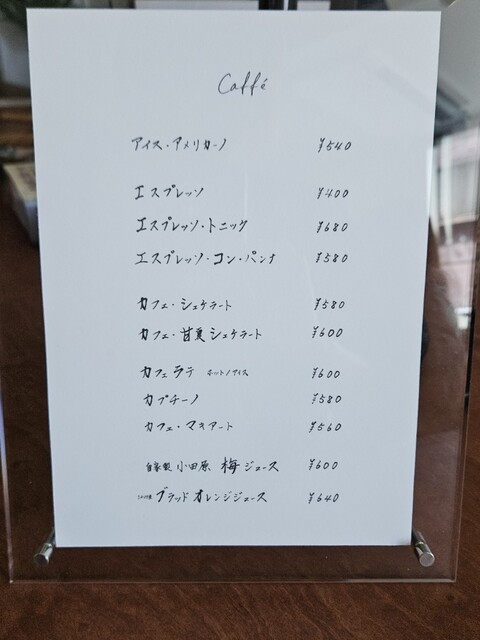 Caffé
アイス・アメリカーノ ¥540
エスプレッソ ¥400
エスプレッソ・トニック ¥680
エスプレッソ・コン・パンナ ¥580
カフェ・シェケラート ¥580
カフェ・甘夏シェケラート ¥600
カフェラテ ホット/アイス ¥600
カプチーノ ¥580
カフェ・マキアート ¥560
自家製 小田原 梅ジュース ¥600
ブラッドオレンジジュース ¥640